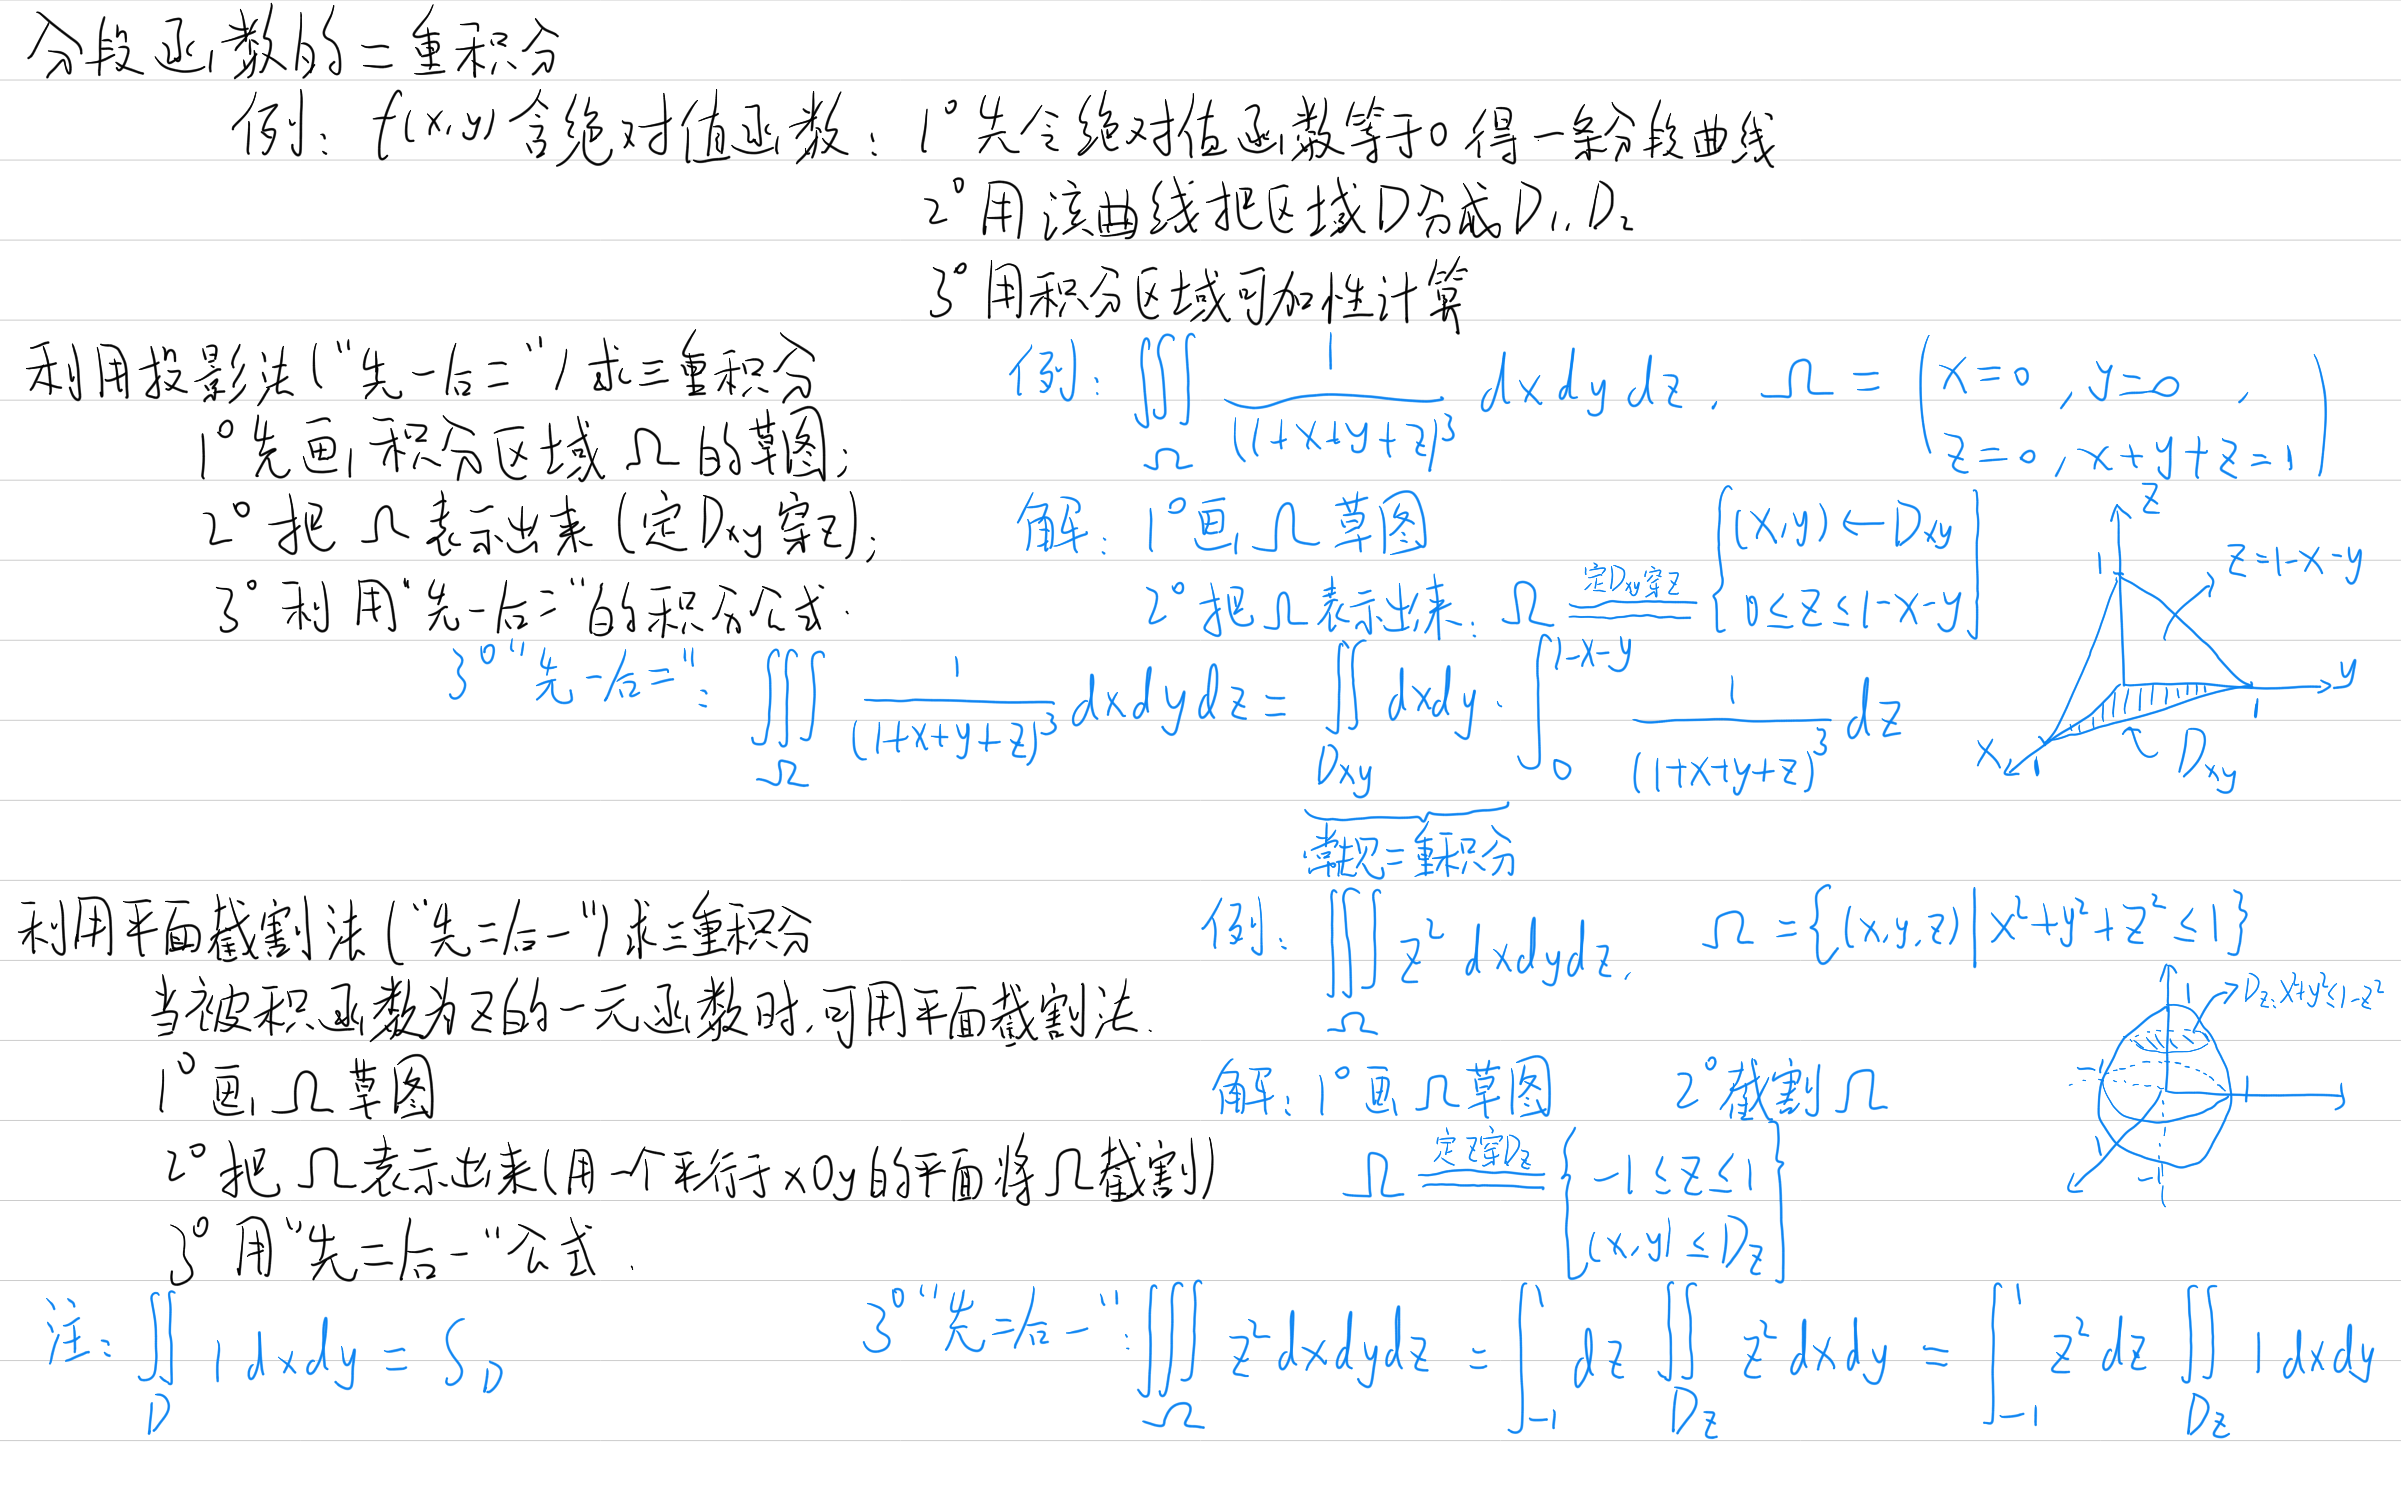 分段函数的二重积分
例：f(x,y)含绝对值函数：1° 先令绝对值函数等于0得一条分段曲线
2° 用该曲线把区域D分成D₁,D₂
3° 用积分区域可加性计算
利用投影法("先一后二")求三重积分
1° 先画积分区域Ω的草图；
2° 把Ω表示出来(定Dxy穿z)；
3° 利用"先一后二"的积分公式.
例：∭_Ω 1/(1+x+y+z)³ dxdydz, Ω = (x=0, y=0, z=0, x+y+z=1)
解：1° 画Ω草图
2° 把Ω表示出来：Ω 定Dxy穿z ══ {(x,y)←Dxy
0≤z≤1-x-y}
3° "先一后二"：∭_Ω 1/(1+x+y+z)³ dxdydz = ∬_Dxy dxdy·∫₀^(1-x-y) 1/(1+x+y+z)³ dz
常规二重积分
z
1
z=1-x-y
y
1
x
1
Dxy
利用平面截割法("先二后一")求三重积分
当被积函数为z的一元函数时,可用平面截割法.
1° 画Ω草图
2° 把Ω表示出来(用一个平行于xOy的平面将Ω截割)
3° 用"先二后一"公式.
注：∬_D 1dxdy = S_D
例：∭_Ω z² dxdydz, Ω={(x,y,z)|x²+y²+z²≤1}
解：1° 画Ω草图 2° 截割Ω
Ω 定z穿Dz ══ {-1≤z≤1
(x,y)≤Dz}
1
Dz:x²+y²≤1-z²
-1
1
1
-1
3° "先二后一"：∭_Ω z²dxdydz = ∫₋₁¹ dz ∬_Dz z²dxdy = ∫₋₁¹ z²dz ∬_Dz 1dxdy